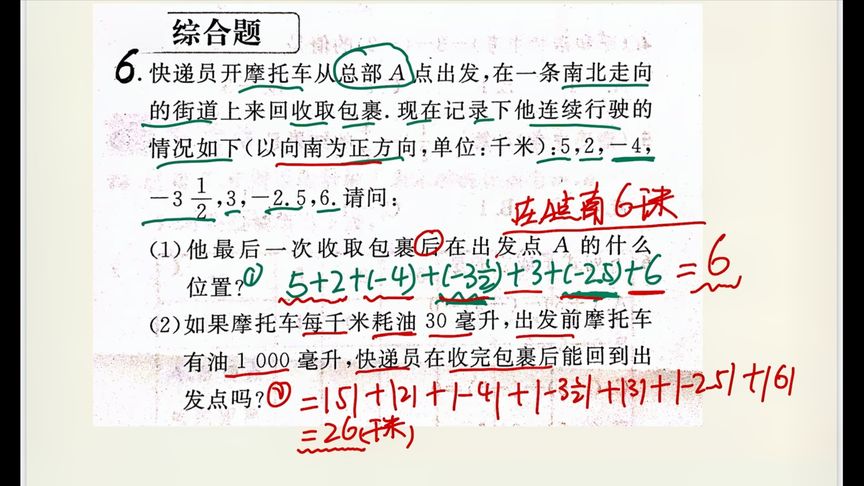 综合题
6.快递员开摩托车从总部A点出发,在一条南北走向
的街道上来回收取包裹.现在记录下他连续行驶的
情况如下(以向南为正方向,单位:千米):5,2,-4,
-3 1/2,3,-2.5,6.请问:
在A点南6千米
(1)他最后一次收取包裹后在出发点A的什么
位置?① 5+2+(-4)+(-3½)+3+(-2.5)+6=6
(2)如果摩托车每千米耗油30毫升,出发前摩托车
有油1000毫升,快递员在收完包裹后能回到出
发点吗?② =|5|+|2|+|-4|+|-3½|+|3|+|-2.5|+|6|
=26(千米)